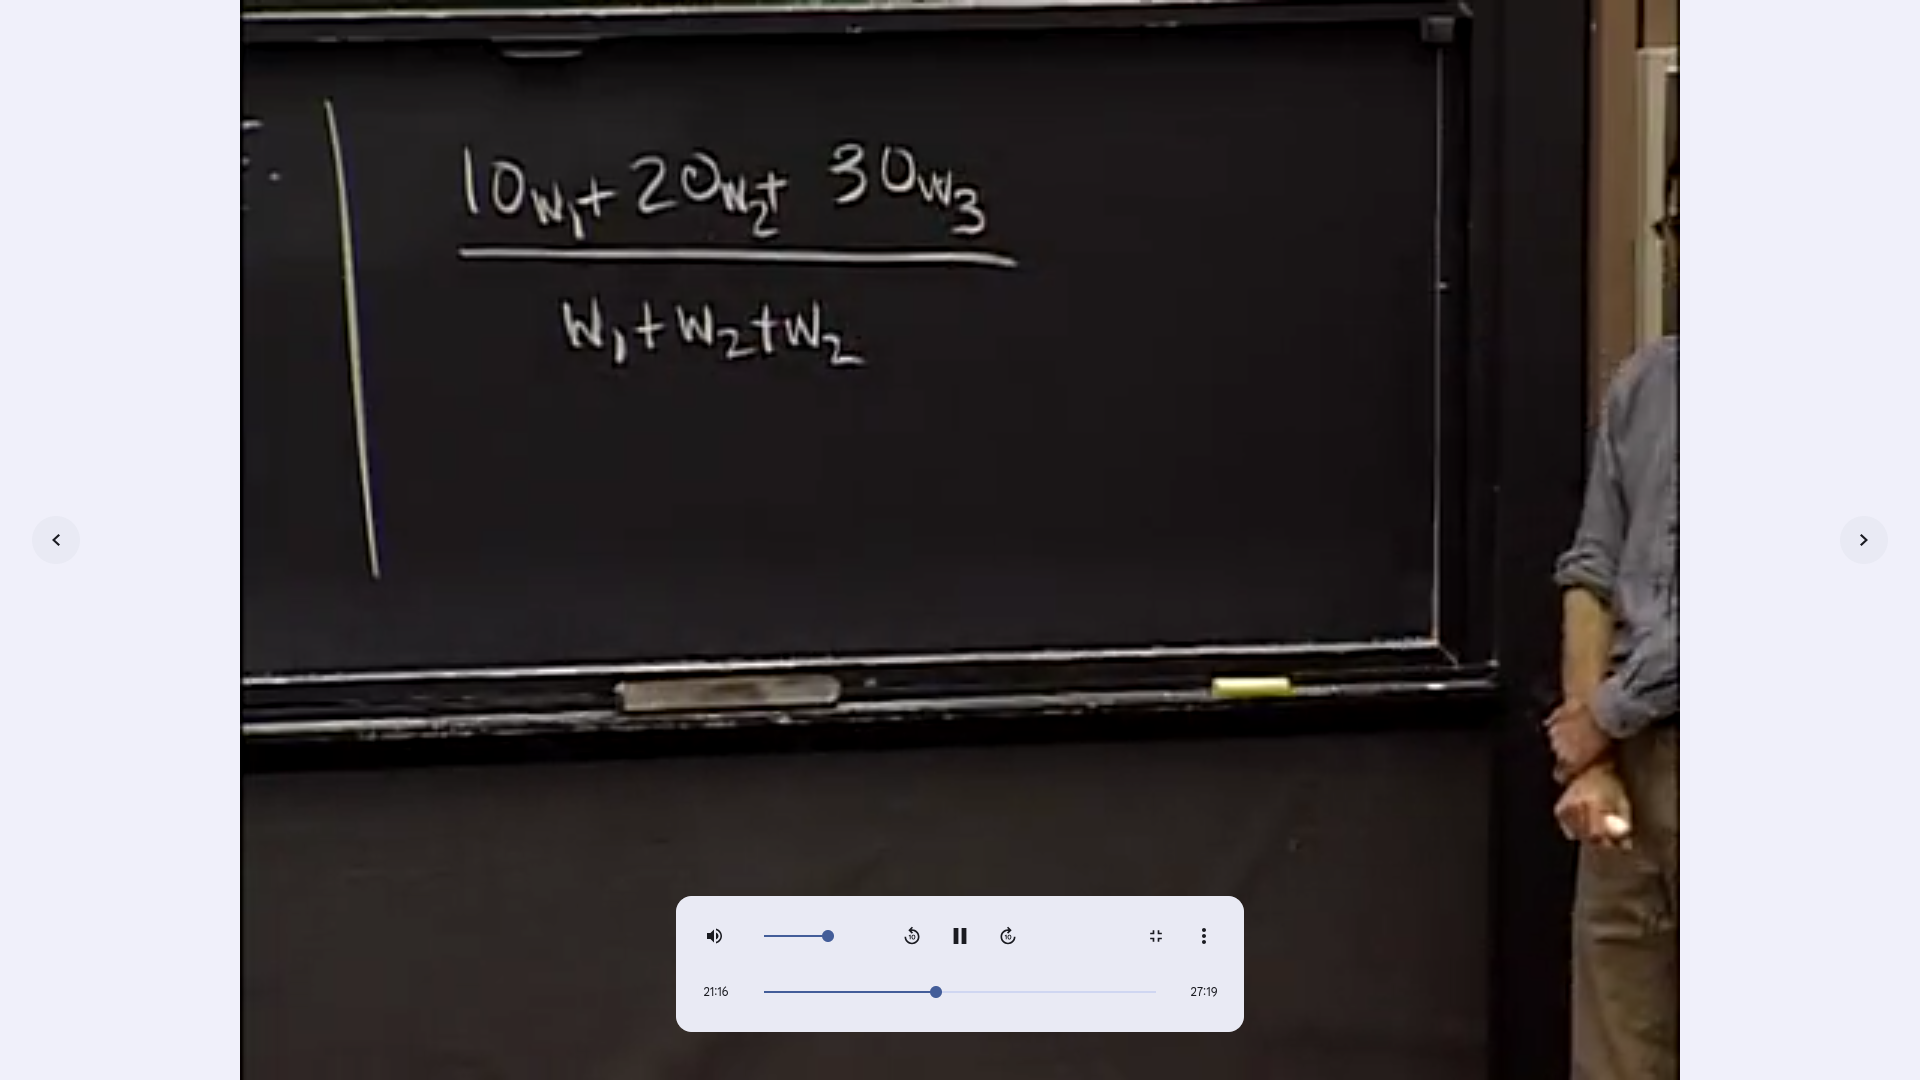 10w₁+20w₂+ 30w₃
w₁+w₂+w₂
10 10
21:16 27:19